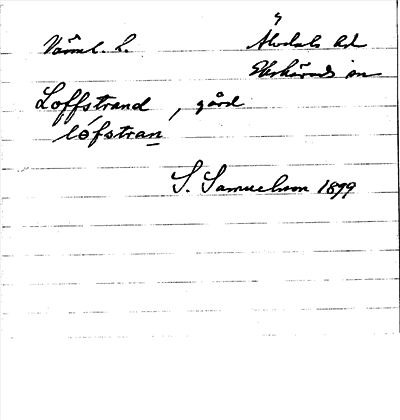 Värml. l. Älvdals hd
Ekshärads sn
Loffstrand, gård
lófstran
S. Samuelson 1899